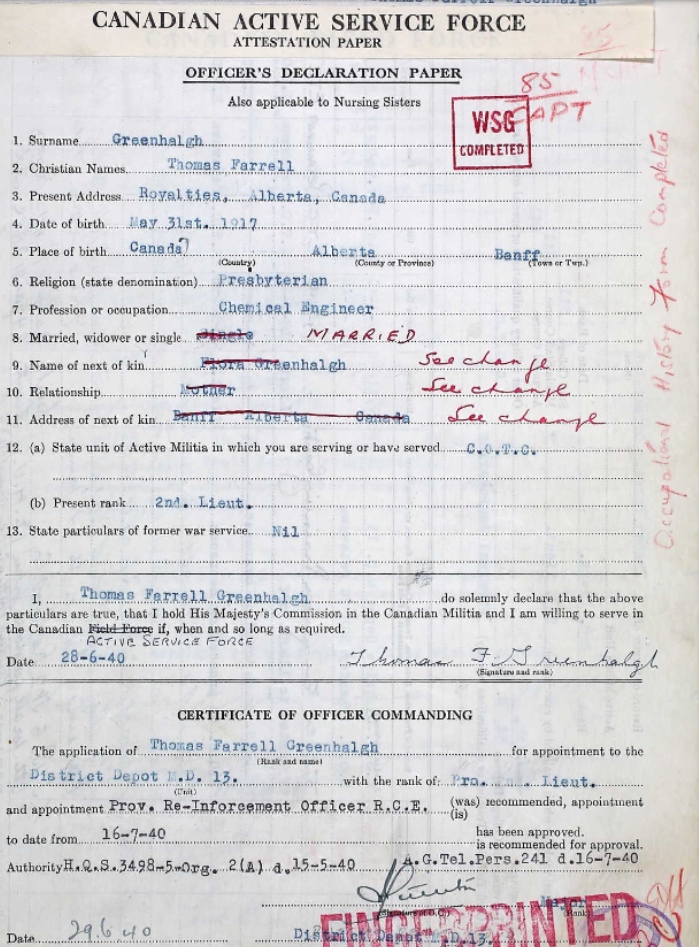 CANADIAN ACTIVE SERVICE FORCE
ATTESTATION PAPER
OFFICER'S DECLARATION PAPER
Also applicable to Nursing Sisters
85
CAPT
WSG
COMPLETED
Occupational History Form Completed
1. Surname Greenhalgh
2. Christian Names Thomas Farrell
3. Present Address Royalties, Alberta, Canada
4. Date of birth May 31st. 1917
5. Place of birth Canada Alberta Banff
(Country) (County or Province) (Town or Twp.)
6. Religion (state denomination) Presbyterian
7. Profession or occupation Chemical Engineer
8. Married, widower or single Single MARRIED
9. Name of next of kin Flora Greenhalgh See change
10. Relationship Mother See change
11. Address of next of kin Banff Alberta Canada See change
12. (a) State unit of Active Militia in which you are serving or have served C.O.T.C.
(b) Present rank 2nd. Lieut.
13. State particulars of former war service Nil
I, Thomas Farrell Greenhalgh do solemnly declare that the above
particulars are true, that I hold His Majesty's Commission in the Canadian Militia and I am willing to serve in
the Canadian Field Force if, when and so long as required.
ACTIVE SERVICE FORCE
Date 28-6-40 Thomas F. Greenhalgh
(Signature and rank)
CERTIFICATE OF OFFICER COMMANDING
The application of Thomas Farrell Greenhalgh for appointment to the
(Rank and name)
District Depot M.D. 13. with the rank of Pro. Lieut.
(Unit)
and appointment Prov. Re-Inforcement Officer R.C.E. (was) recommended, appointment
(is)
to date from 16-7-40 has been approved.
is recommended for approval.
Authority H.Q.S.3498-5-Org. 2(A) d.15-5-40 A.G.Tel.Pers.241 d.16-7-40
Major
(Signature of O.C.) (Rank)
FINGERPRINTED
Date 29.6.40 District Depot M.D.13